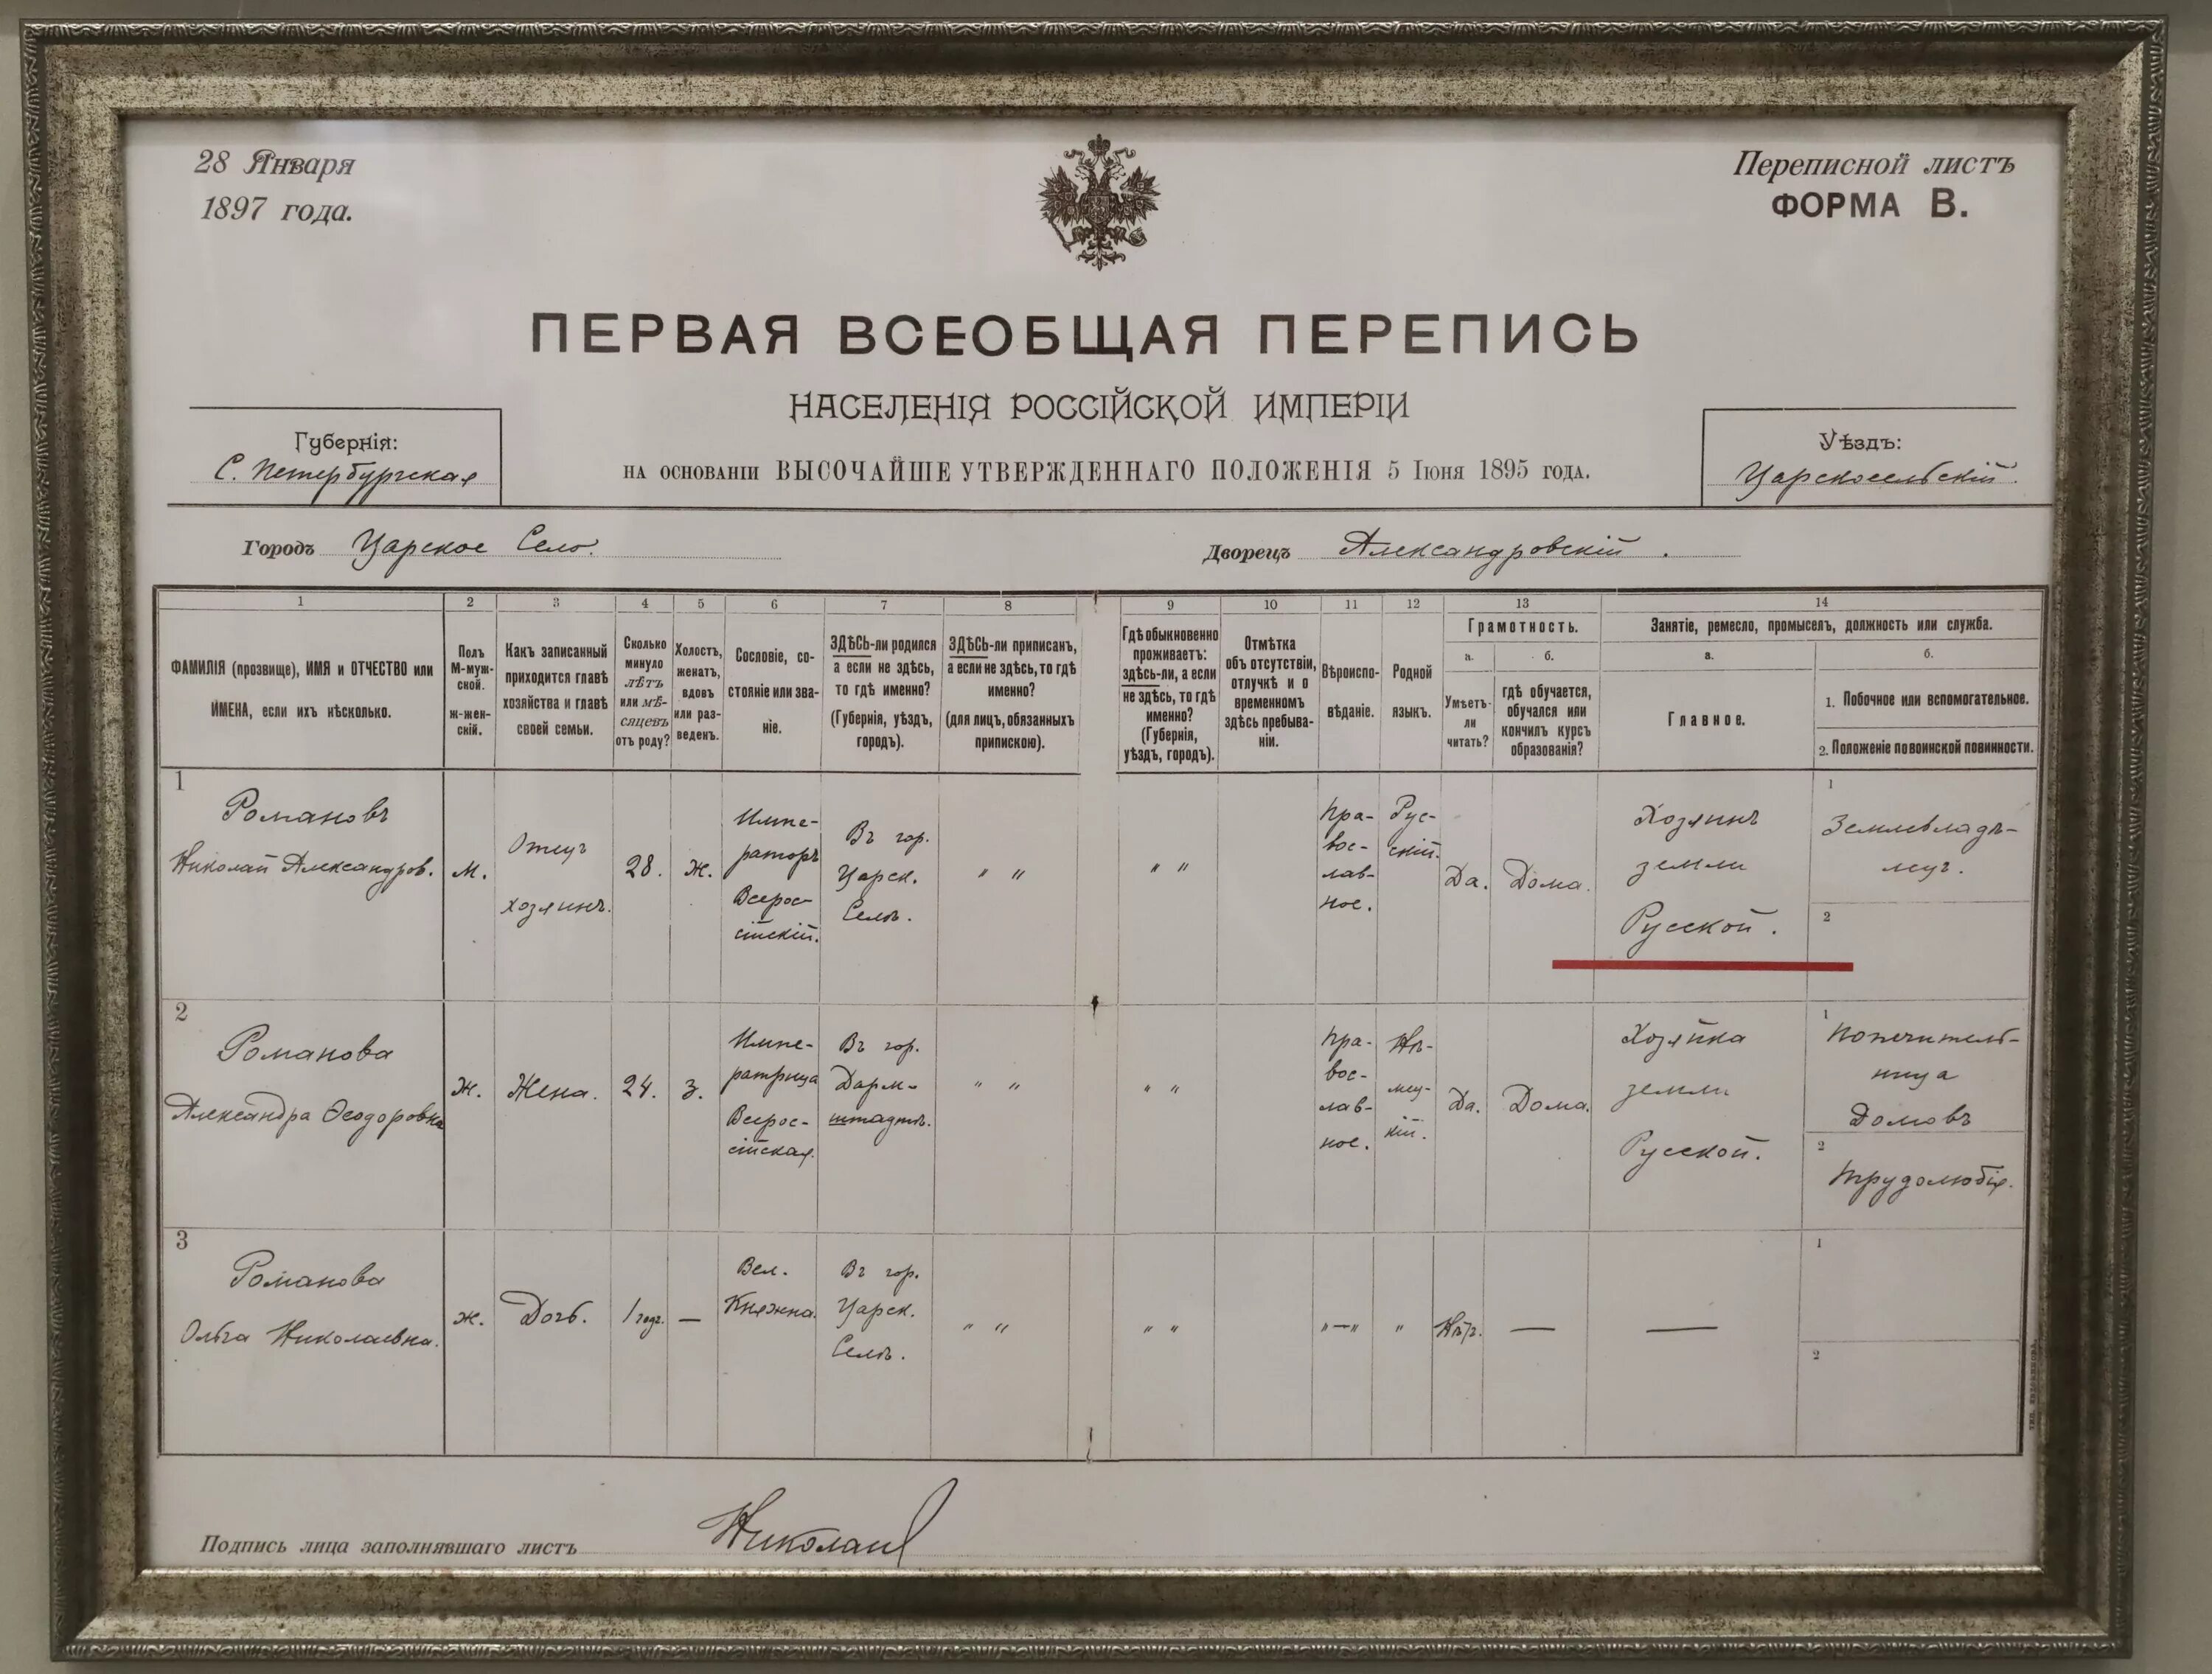 28 Января
1897 года.
Переписной листъ
ФОРМА В.
ПЕРВАЯ ВСЕОБЩАЯ ПЕРЕПИСЬ
НАСЕЛЕНІЯ РОССІЙСКОЙ ИМПЕРІИ
НА ОСНОВАНІИ ВЫСОЧАЙШЕ УТВЕРЖДЕННАГО ПОЛОЖЕНІЯ 5 Іюня 1895 ГОДА.
Губернія:
С. Петербургская
Уѣздъ:
Царскосельскій.
Городъ Царское Село.
Дворецъ Александровскій.
1
2
3
4
5
6
7
8
9
10
11
12
13
14
ФАМИЛІЯ (прозвище), ИМЯ и ОТЧЕСТВО или
ИМЕНА, если ихъ нѣсколько.
Полъ
М-муж-
ской.
ж-жен-
скій.
Какъ записанный
приходится главѣ
хозяйства и главѣ
своей семьи.
Сколько
минуло
лѣтъ
или мѣ-
сяцевъ
отъ роду?
Холостъ,
женатъ,
вдовъ
или раз-
веденъ.
Сословіе, со-
стояніе или зва-
ніе.
ЗДѢСЬ-ли родился
а если не здѣсь,
то гдѣ именно?
(Губернія, уѣздъ,
городъ).
ЗДѢСЬ-ли приписанъ,
а если не здѣсь, то гдѣ
именно?
(для лицъ, обязанныхъ
припискою).
Гдѣ обыкновенно
проживаетъ:
здѣсь-ли, а если
не здѣсь, то гдѣ
именно?
(Губернія,
уѣздъ, городъ).
Отмѣтка
объ отсутствіи,
отлучкѣ и о
временномъ
здѣсь пребыва-
ніи.
Вѣроиспо-
вѣданіе.
Родной
языкъ.
Грамотность.
а.
б.
Умѣетъ-
ли
читать?
гдѣ обучается,
обучался или
кончилъ курсъ
образованія?
Занятіе, ремесло, промыселъ, должность или служба.
а.
б.
Главное.
1. Побочное или вспомогательное.
2. Положеніе по воинской повинности.
1
Романовъ
Николай Александров.
м.
Отецъ
хозяинъ.
28.
ж.
Импе-
раторъ
Всерос-
сійскій.
Въ гор.
Царск.
Селѣ.
" "
" "
Пра-
вос-
лав-
ное.
Рус-
скій.
Да.
Дома.
Хозяинъ
земли
Русской.
1
Землевладѣ-
лецъ.
2
2
Романова
Александра Ѳеодоровна
ж.
Жена.
24.
з.
Импе-
ратрица
Всерос-
сійская.
Въ гор.
Дарм-
штадтѣ.
" "
" "
Пра-
вос-
лав-
ное.
Нѣ-
мец-
кій.
Да.
Дома.
Хозяйка
земли
Русской.
1
Попечитель-
ница
Домовъ
2
Трудолюбія.
3
Романова
Ольга Николаевна.
ж.
Дочь.
1 годъ.
—
Вел.
Княжна.
Въ гор.
Царск.
Селѣ.
" "
" "
"—"
"
Нѣтъ.
—
—
1
2
Подпись лица заполнявшаго листъ
Николай